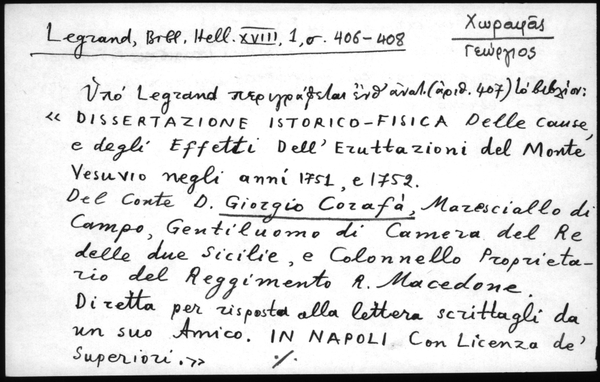 Legrand, Bell. Hell. XVIII, 1, σ. 406-408
Χωραφᾶς
Γεώργιος
Ὑπό Legrand περιγράφεται ἐνθ' ἀνωτ. (ἀριθ. 407) τό βιβλίον:
« DISSERTAZIONE ISTORICO-FISICA Delle cause,
e degli Effetti Dell' Eruttazioni del Monte
Vesuvio negli anni 1751, e 1752.
Del Conte D. Giorgio Corafà, Maresciallo di
Campo, Gentiluomo di Camera del Re
delle due Sicilie, e Colonnello Proprieta-
rio del Reggimento R. Macedone.
Diretta per risposta alla lettera scrittagli da
un suo Amico. IN NAPOLI Con Licenza de'
Superiori.» ./.